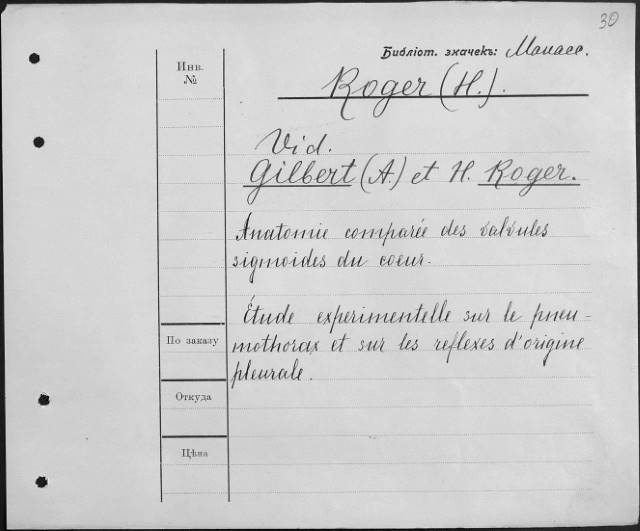 30
Библіот. значекъ: Манасс.
Инв.
№
Roger (H.).
Vid.
Gilbert (A.) et H. Roger.
Anatomie comparée des valvules
sigmoides du coeur.
Étude experimentelle sur le pneu-
mothorax et sur les reflexes d'origine
pleurale.
По заказу
Откуда
Цѣна